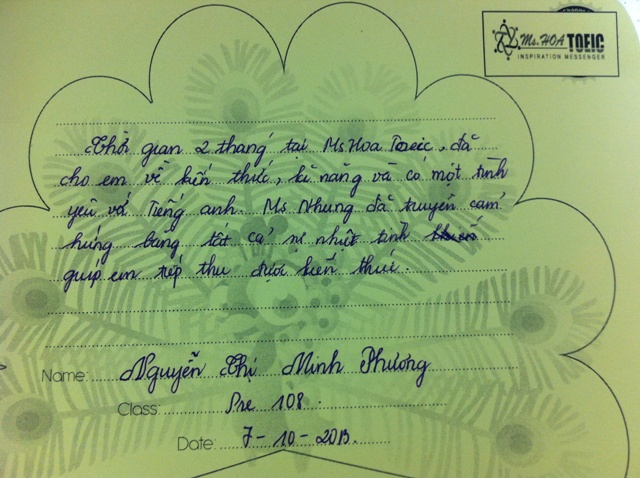 Ms. HOA TOEIC
INSPIRATION MESSENGER
Thời gian 2 tháng tại Ms Hoa Toeic, đã
cho em về kiến thức, kĩ năng và có một tình
yêu với Tiếng anh. Ms Nhung đã truyền cảm
hứng bằng tất cả sự nhiệt tình
giúp em tiếp thu được kiến thức.
Name: Nguyễn Thị Minh Phương
Class: Pre 108.
Date: 7-10-2013